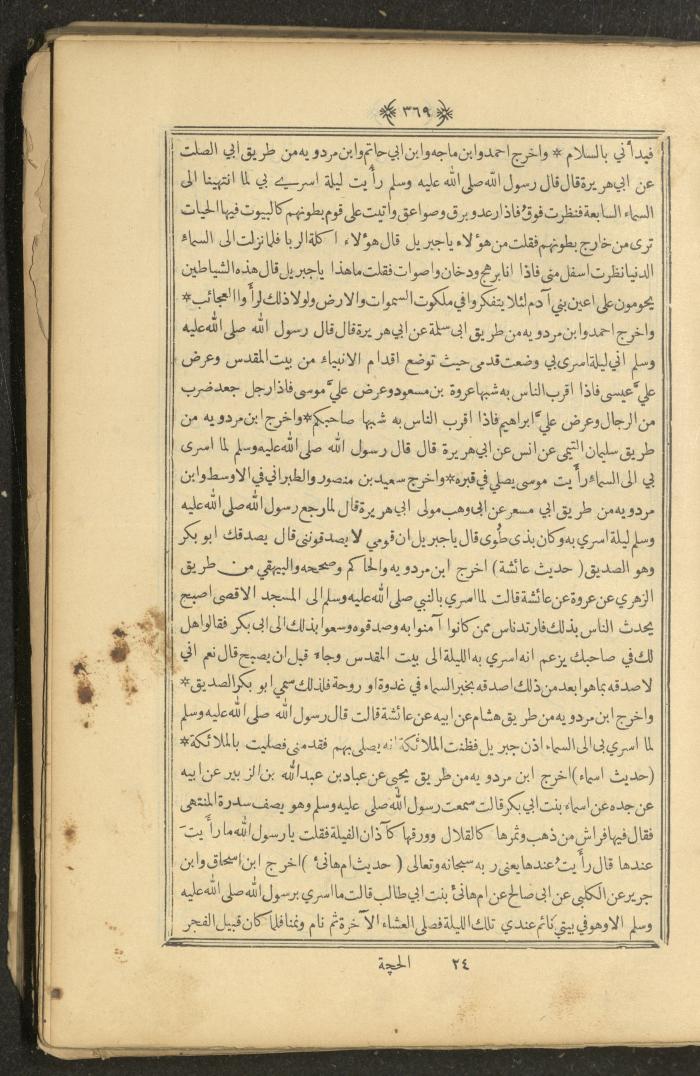 ٣٦٩
فبدأني بالسلام * واخرج احمد وابن ماجه وابن ابي حاتم وابن مردويه من طريق ابي الصلت
عن ابي هريرة قال قال رسول الله صلى الله عليه وسلم رأيت ليلة اسرى بي لما انتهينا الى
السماء السابعة فنظرت فوق فاذا رعد وبرق وصواعق واتيت على قوم بطونهم كالبيوت فيها الحيات
ترى من خارج بطونهم فقلت من هؤلاء ياجبريل قال هؤلاء اكلة الربا فلما نزلت الى السماء
الدنيا نظرت اسفل منى فاذا انا برهج ودخان واصوات فقلت ما هذا ياجبريل قال هذه الشياطين
يحومون على اعين بني آدم لئلا يتفكروا في ملكوت السموات والارض ولولا ذلك لرأوا العجائب *
واخرج احمد وابن مردويه من طريق ابى سلمة عن ابى هريرة قال قال رسول الله صلى الله عليه
وسلم اني ليلة اسرى بي وضعت قدمى حيث توضع اقدام الانبياء من بيت المقدس وعرض
عليَّ عيسى فاذا اقرب الناس به شبها عروة بن مسعود وعرض عليَّ موسى فاذا رجل جعد ضرب
من الرجال وعرض عليَّ ابراهيم فاذا اقرب الناس به شبها صاحبكم * واخرج ابن مردويه من
طريق سليمان التيمى عن انس عن ابي هريرة قال قال رسول الله صلى الله عليه وسلم لما اسرى
بي الى السماء رأيت موسى يصلي في قبره * واخرج سعيد بن منصور والطبراني في الاوسط وابن
مردويه من طريق ابي مسعر عن ابى وهب مولى ابي هريرة قال لما رجع رسول الله صلى الله عليه
وسلم ليلة اسري به وكان بذى طُوى قال ياجبريل ان قومي لا يصدقوننى قال يصدقك ابو بكر
وهو الصديق ( حديث عائشة ) اخرج ابن مردويه والحاكم وصححه والبيهقي من طريق
الزهري عن عروة عن عائشة قالت لما اسري بالنبي صلى الله عليه وسلم الى المسجد الاقصى اصبح
يحدث الناس بذلك فارتد ناس ممن كانوا آمنوا به وصدقوه وسعوا بذلك الى ابى بكر فقالوا هل
لك في صاحبك يزعم انه اسري به الليلة الى بيت المقدس وجاء قبل ان يصبح قال نعم اني
لاصدقه بما هو ابعد من ذلك اصدقه بخبر السماء في غدوة او روحة فلذلك سمي ابو بكر الصديق *
واخرج ابن مردويه من طريق هشام عن ابيه عن عائشة قالت قال رسول الله صلى الله عليه وسلم
لما اسري بى الى السماء اذن جبريل فظنت الملائكة انه يصلى بهم فقدمنى فصليت بالملائكة *
(حديث اسماء) اخرج ابن مردويه من طريق يحيى عن عباد بن عبد الله بن الزبير عن ابيه
عن جده عن اسماء بنت ابي بكر قالت سمعت رسول الله صلى عليه وسلم وهو يصف سدرة المنتهى
فقال فيها فراش من ذهب وثمرها كالقلال وورقها كآذان الفيلة فقلت يا رسول الله ما رأيتَ
عندها قال رأيتُ عندها يعنى ربه سبحانه وتعالى ( حديث ام هانئ ) اخرج ابن اسحاق وابن
جرير عن الكلبى عن ابى صالح عن ام هانئ بنت ابى طالب قالت ما اسري برسول الله صلى الله عليه
وسلم الا وهو في بيتي نائم عندي تلك الليلة فصلى العشاء الآخرة ثم نام ونمنا فلما كان قبيل الفجر
٢٤ الحجة